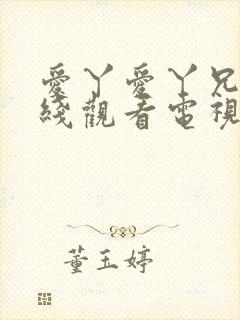 愛丫愛丫兄
綫觀看電視
董玉婷